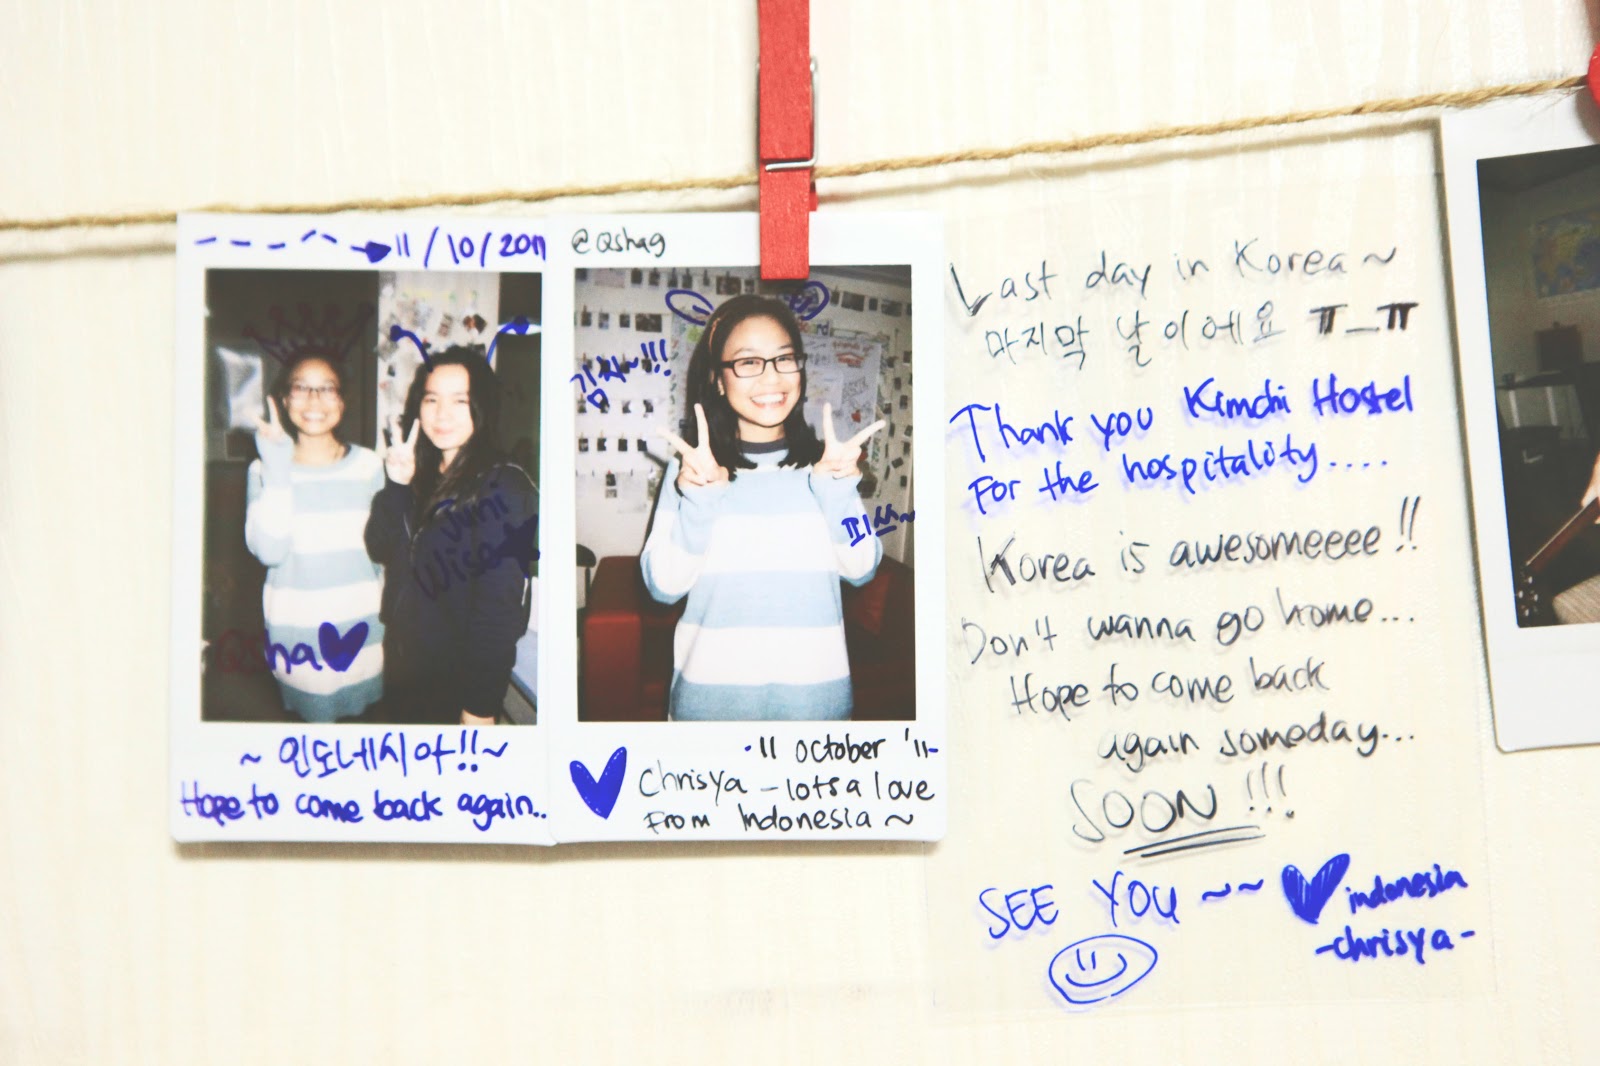 11/10/2011
Qsha
~ 인도네시아!! ~
Hope to come back again..
@Qshag
피쓰~
·11 October '11-
Chrisya - lotsa love
From Indonesia ~
Last day in Korea ~
마지막 날이에요 ㅠ_ㅠ
Thank you Kimchi Hostel
For the hospitality....
Korea is awesomeeee!!
Don't wanna go home...
Hope to come back
again someday...
SOON!!!
SEE YOU ~~
indonesia
-chrisya-